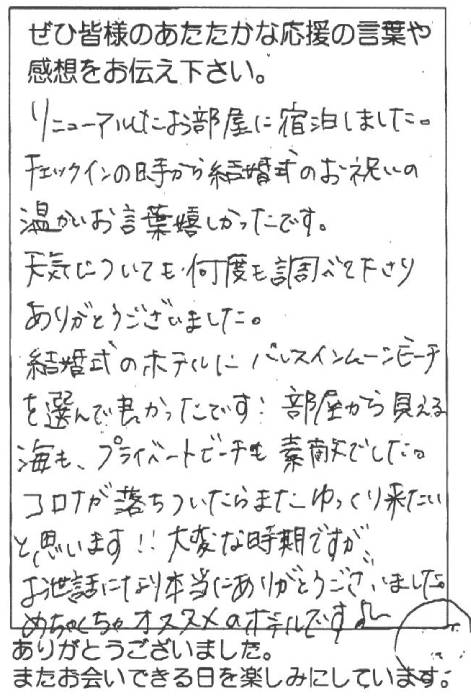 ぜひ皆様のあたたかな応援の言葉や
感想をお伝え下さい。
リニューアルしたお部屋に宿泊しました。
チェックインの時から結婚式のお祝いの
温かいお言葉嬉しかったです。
天気についても何度も調べて下さり
ありがとうございました。
結婚式のホテルにパレスインムーンビーチ
を選んで良かったです! 部屋から見える
海も、プライベートビーチも素敵でした。
コロナが落ちついたらまたゆっくり来たい
と思います!! 大変な時期ですが、
お世話になり本当にありがとうございました。
めちゃくちゃオススメのホテルです♪
ありがとうございました。
またお会いできる日を楽しみにしています。